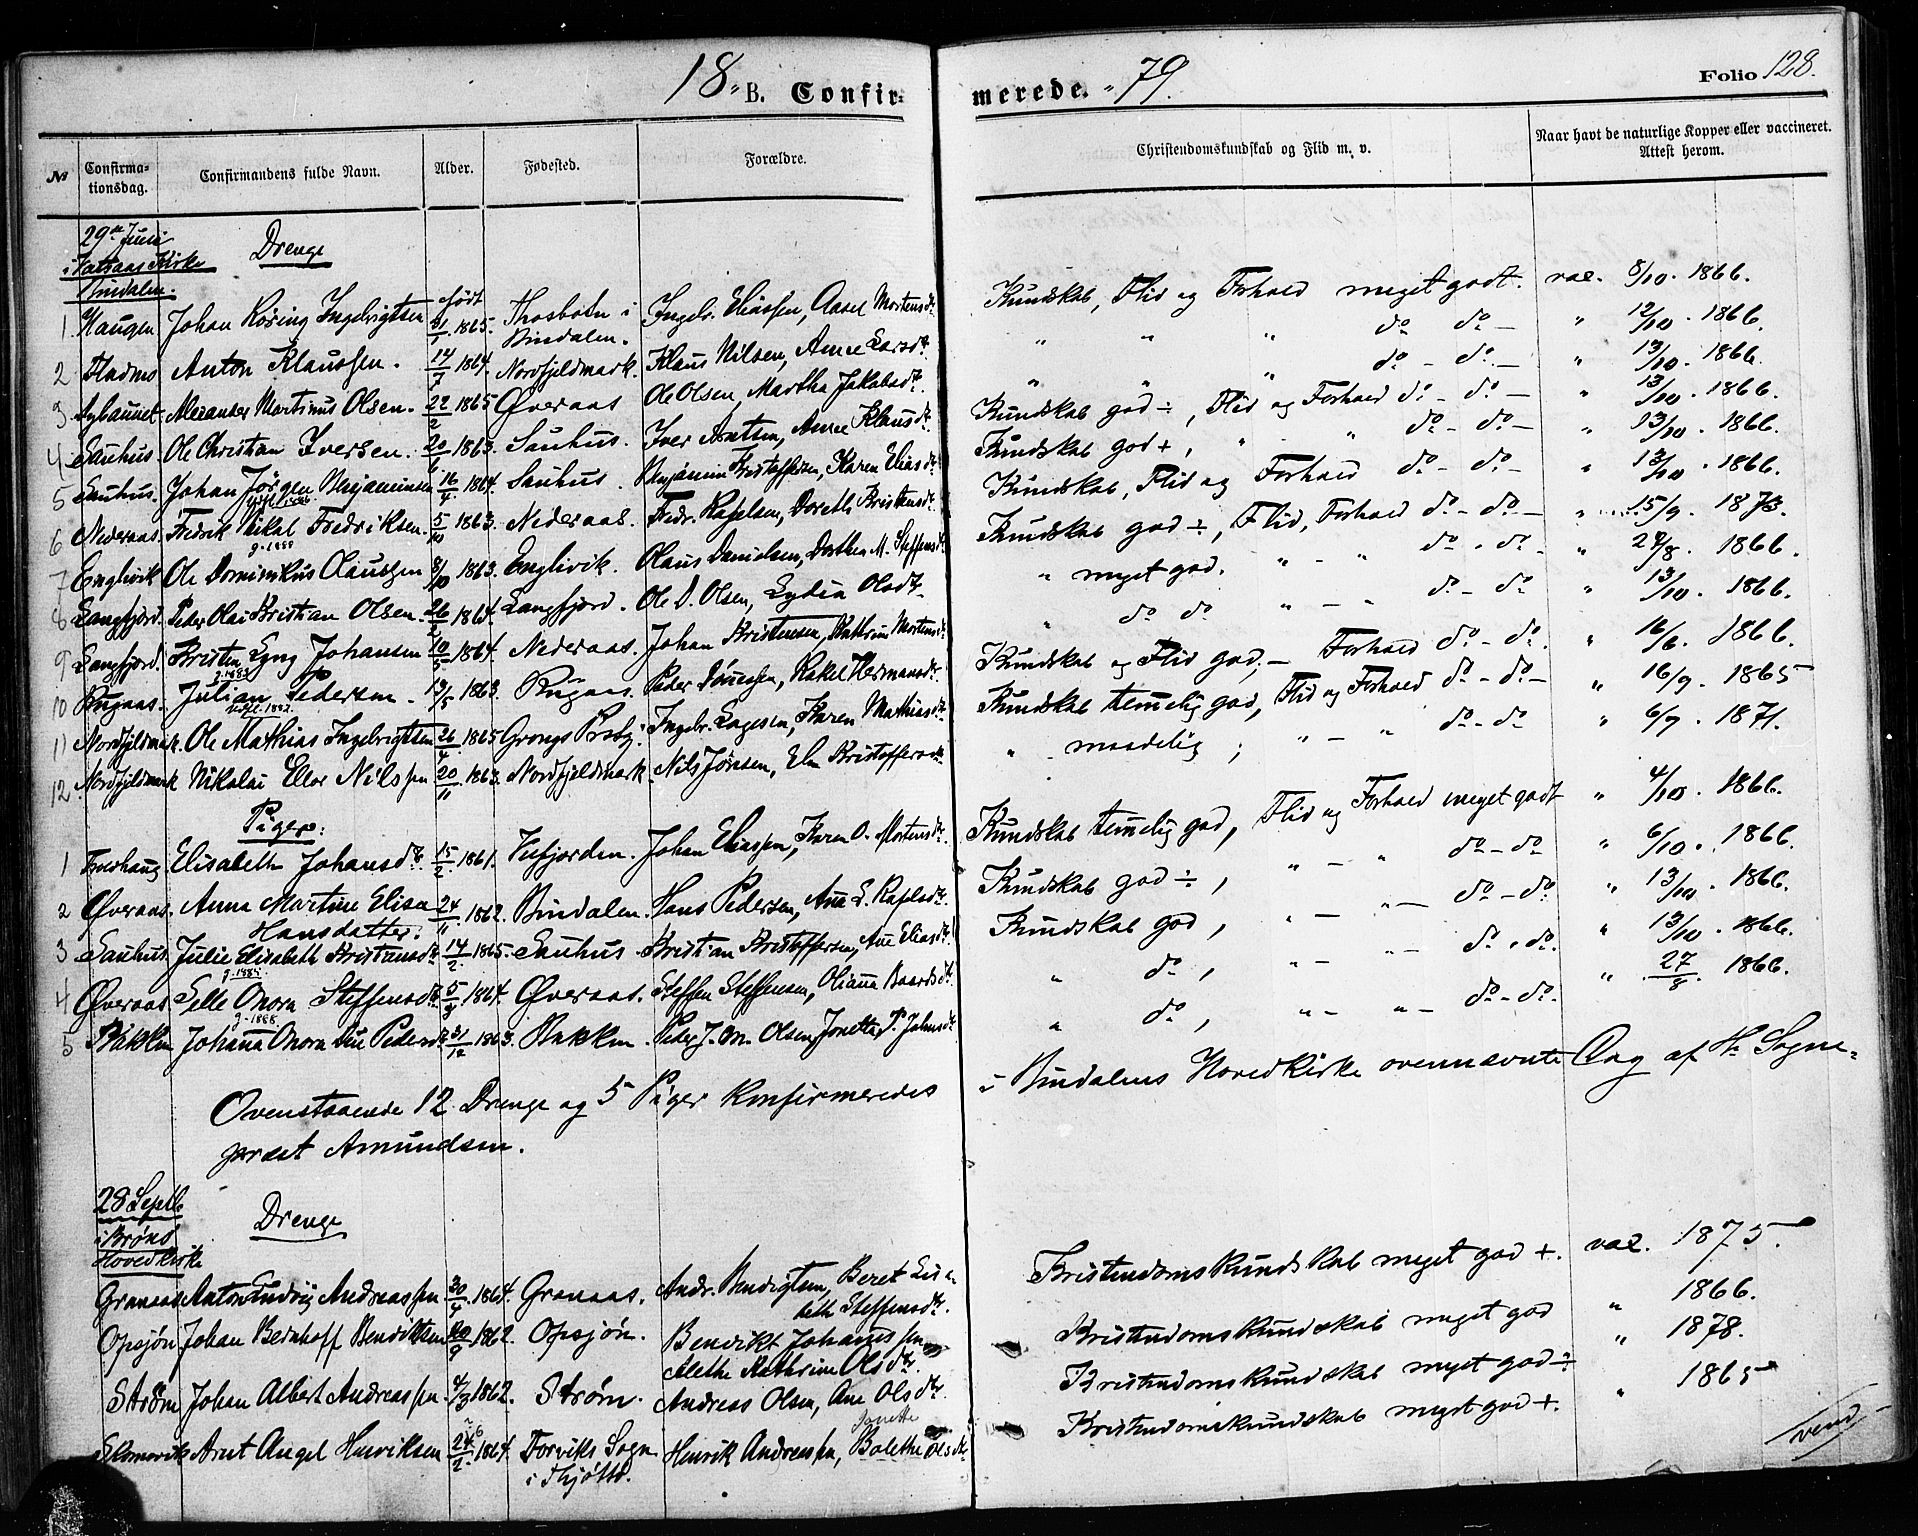 18 B. Confirmerede. 79. Folio 128.
№ Confirmationsdag. Confirmandens fulde Navn. Alder. Fødested. Forældre. Christendomskundskab og Flid m. v. Naar havt de naturlige Kopper eller vaccineret. Attest herom.
29de Juni
i Vatsaas Kirke Drenge
Bindalen.
1 Haugen Johan Röring Ingebrigtsen født 31/1 1865. Thosbotn i Bindalen. Ingebr. Eliassen, Aasel Mortensdtr. Kundskab, Flid og Forhold meget godt. vac. 8/10. 1866.
2 Anton Klaussen. 14/7 1864. Nordfjeldmark. Klaus Nilsen, Anne Larsdtr. " " " do do — " 12/10. 1866.
3 Alexander Martinus Olsen. 22/2 1865 Øveraas Ole Olsen, Martha Jakobsdtr. " " " do — do — " 13/10. 1866.
4 Sauhus. Ole Christian Iversen. 20/6 1863. Sauhus. Iver Arntsen, Anne Klausdtr. Kundskab god ÷, Flid og Forhold do — do — " 13/10. 1866.
5 Sauhus. Johan Jörgen Benjaminsen 16/4 1864. Sauhus. Benjamin Kristoffersen, Karen Eliasdtr. Kundskab god +, " " do — do — " 13/10. 1866.
6 Nederaas. Fredrik Mikal Fredriksen. 5/10 1863. Nederaas. Fredr. Rafelsen, Dorethe Kristensdtr. Kundskab, Flid og Forhold do — do — " 13/10. 1866.
g. 1888
7 Englivik Ole Dominikus Olaussen 8/10 1863. Englivik. Olaus Danielsen, Dorthea M. Steffensdtr. Kundskab god ÷, Flid, Forhold do — do — " 15/9. 1873.
8 Langfjord. Peder Olai Kristian Olsen. 26/2 1864. Langfjord. Ole D. Olsen, Lydia Olsdtr. " meget god. " — " do - do — " 28/8. 1866.
9 Langfjord. Kristen Lyng Johansen 10/5 1864. Nederaas. Johan Kristensen, Kathrine Mortensdtr. " do do " — " do — do " 13/10. 1866.
10 Bugaas. Julian Pedersen. 13/5 1863. Bugaas. Peder Dönnessen, Rakel Hermansdtr. Kundskab og Flid god, — Forhold do — do. " 16/6. 1866.
11 Nordfjeldmark. Ole Mathias Ingebrigtsen 26/4 1865 Grongs Præstgj. Ingebr. Lagesen, Karen Mathiasdtr. Kundskab temmelig god, Flid og Forhold do — do — " 16/9. 1865
12 Nordfjeldmark Nikolai Elior Nilssen 20/11 1863. Nordfjeldmark. Nils Jönsen, Elen Kristoffersdtr. " maadelig ; " — " do — do " 6/9. 1871.
Piger:
1 Elisabeth Johansdtr. 15/2. 1861. Vefjorden. Johan Eliassen, Karen O. Mortensdtr. Kundskab temmelig god, Flid og Forhold meget godt " 4/10. 1866.
2 Øveraas. Anna Martine Elisa Hansdatter. 24/11 1862. Bindalen. Hans Pedersen, Ane E. Rafelsdtr. Kundskab god ÷, " — " do — do " 6/10. 1866.
3 Sauhus. Julie Elisabeth Kristiansdtr 14/2 1865. Sauhus. Kristian Kristoffersen, Ane Eliasdtr. Kundskab god, " — " — do — do. " 13/10. 1866.
4 Øveraas. Selle Onora Steffensdtr. 5/3 1864. Øveraas. Steffen Steffensen, Olianna Baardsdtr. " do, " — " — do - do. " 13/10. 1866.
g. 1888.
5 Bakken Johanna Onora Ane Pedersdtr 31/12 1863. Bakken. Peder J. M. Olsen, Jonetta P. Johnsdtr. " do, " — " — do — do. " 27/8. 1866.
Ovenstaaende 12 Drenge og 5 Piger konfirmeredes i Bindalens Hovedkirke ovennævnte Dag af Hr Sogne-
præst Amundsen.
28 Septb.
i Brønø Drenge
Hovedkirke
Granaas Anton Ludvig Andreassen 30/4 1864. Granaas. Andr. Bendigtsen, Beret Lisabeth Steffensdtr. Kristendomskundskab meget god +. vac. 1875.
Opsjön Johan Bernhoff Benriktsen 20/9 1862. Opsjön. Benrikt Johannessen, Alethe Kathrine Olsdtr. Kristendomskundskab meget god " 1866.
Ström Johan Albert Andreassen 4/3 1862. Ström. Andreas Olsen, Ane Olsdtr. Kristendomskundskab meget god ÷ " 1878.
Arnt Angel Henriksen 1864. Forviks Sogn i Thjøttø. Henrik Andreassen, Jonette Balethe Olsdtr. Kristendomskundskab meget god +. " 1865
vend